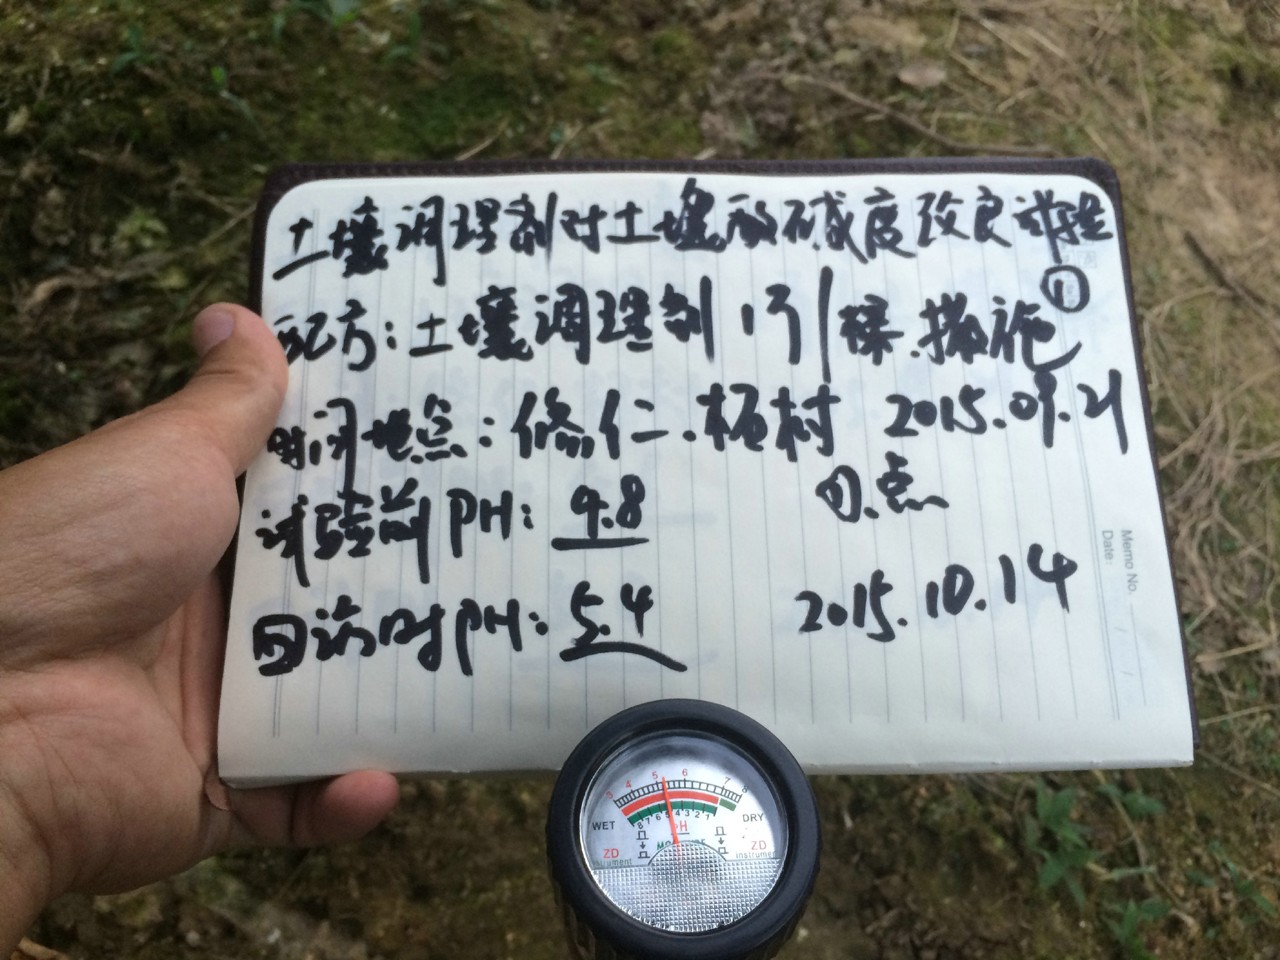 土壤调理剂对土壤酸碱度改良试验
①
配方：土壤调理剂 1斤/棵.撒施
时间地点：修仁.柘村 2015.09.21
试验前PH：4.8 ①.点
回访时PH：5.4 2015.10.14
Memo No.
Date:
3 4 5 6 7 8
WET DRY
8 7 6 5 4 3 2 1
PH
ZD ZD
instrument